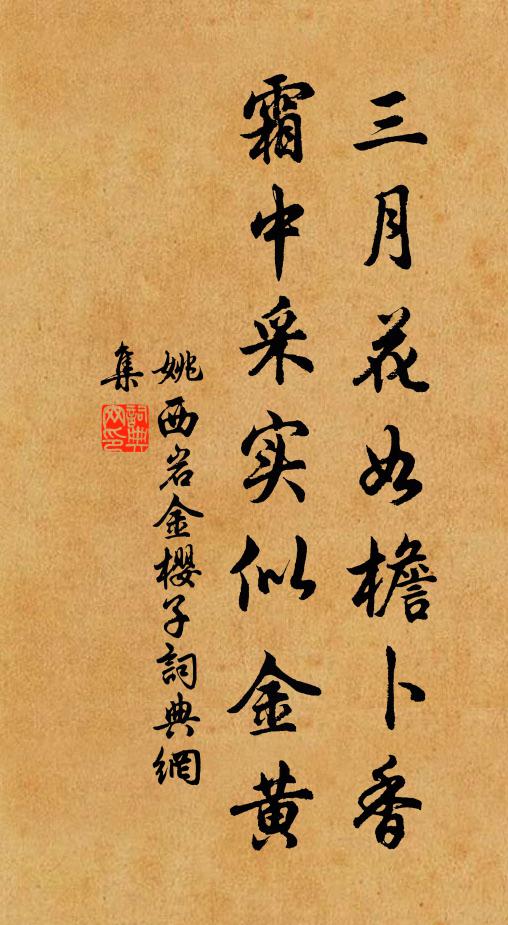 三月花如檐卜香
霜中采实似金黄
姚西岩金樱子詞典網
集
詞典
网印